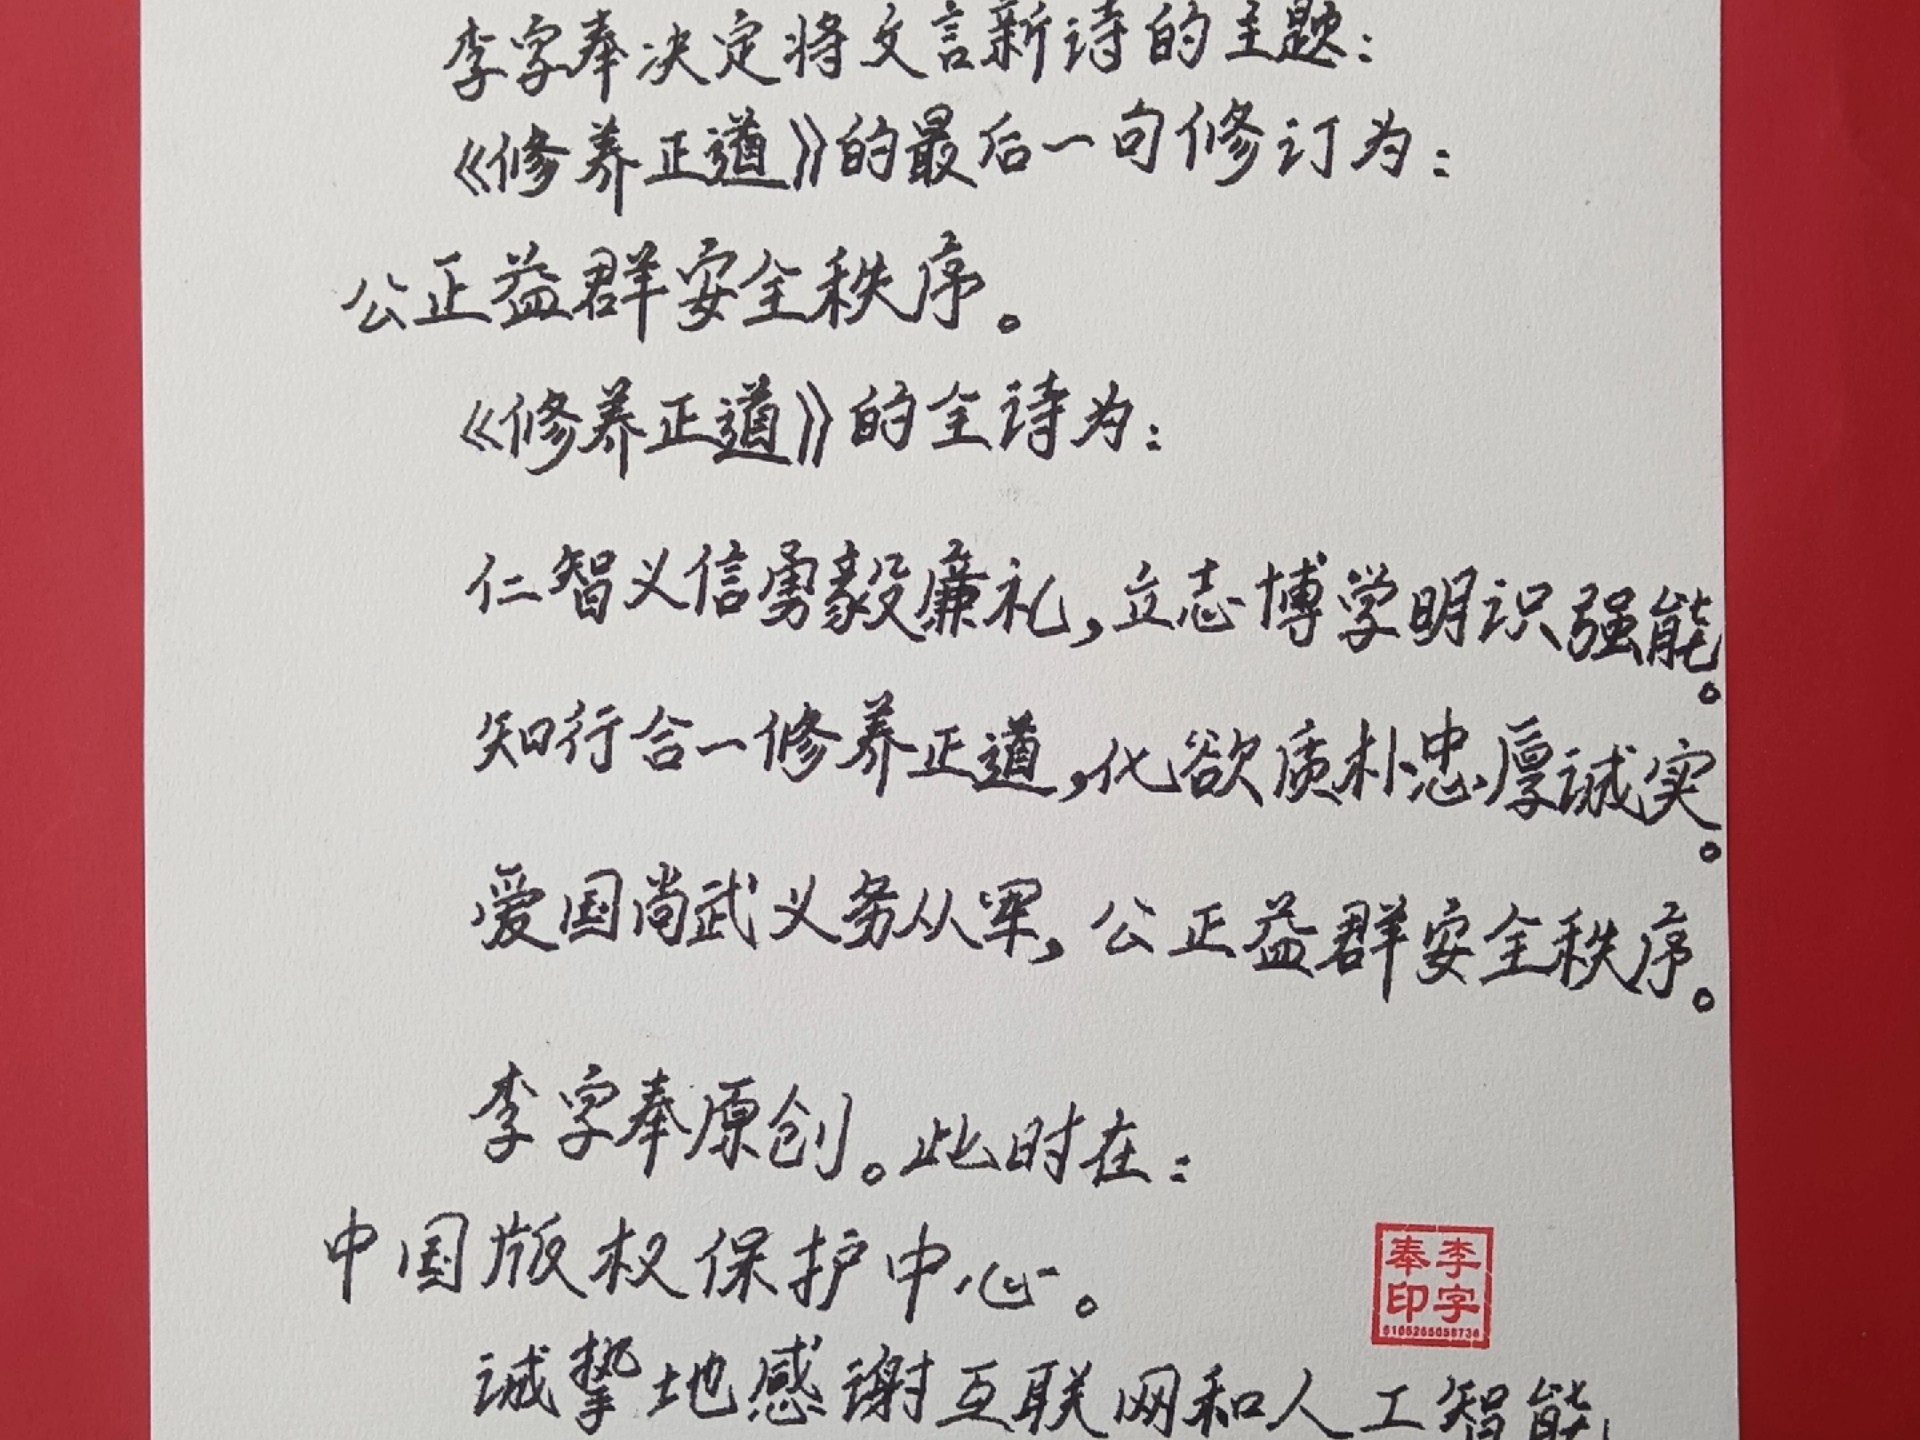 李字奉决定将文言新诗的主题：
《修养正道》的最后一句修订为：
公正益群安全秩序。
《修养正道》的全诗为：
仁智义信勇毅廉礼，立志博学明识强能。
知行合一修养正道，化欲质朴忠厚诚实。
爱国尚武义务从军，公正益群安全秩序。
李字奉原创。此时在：
中国版权保护中心。
李字奉印
诚挚地感谢互联网和人工智能